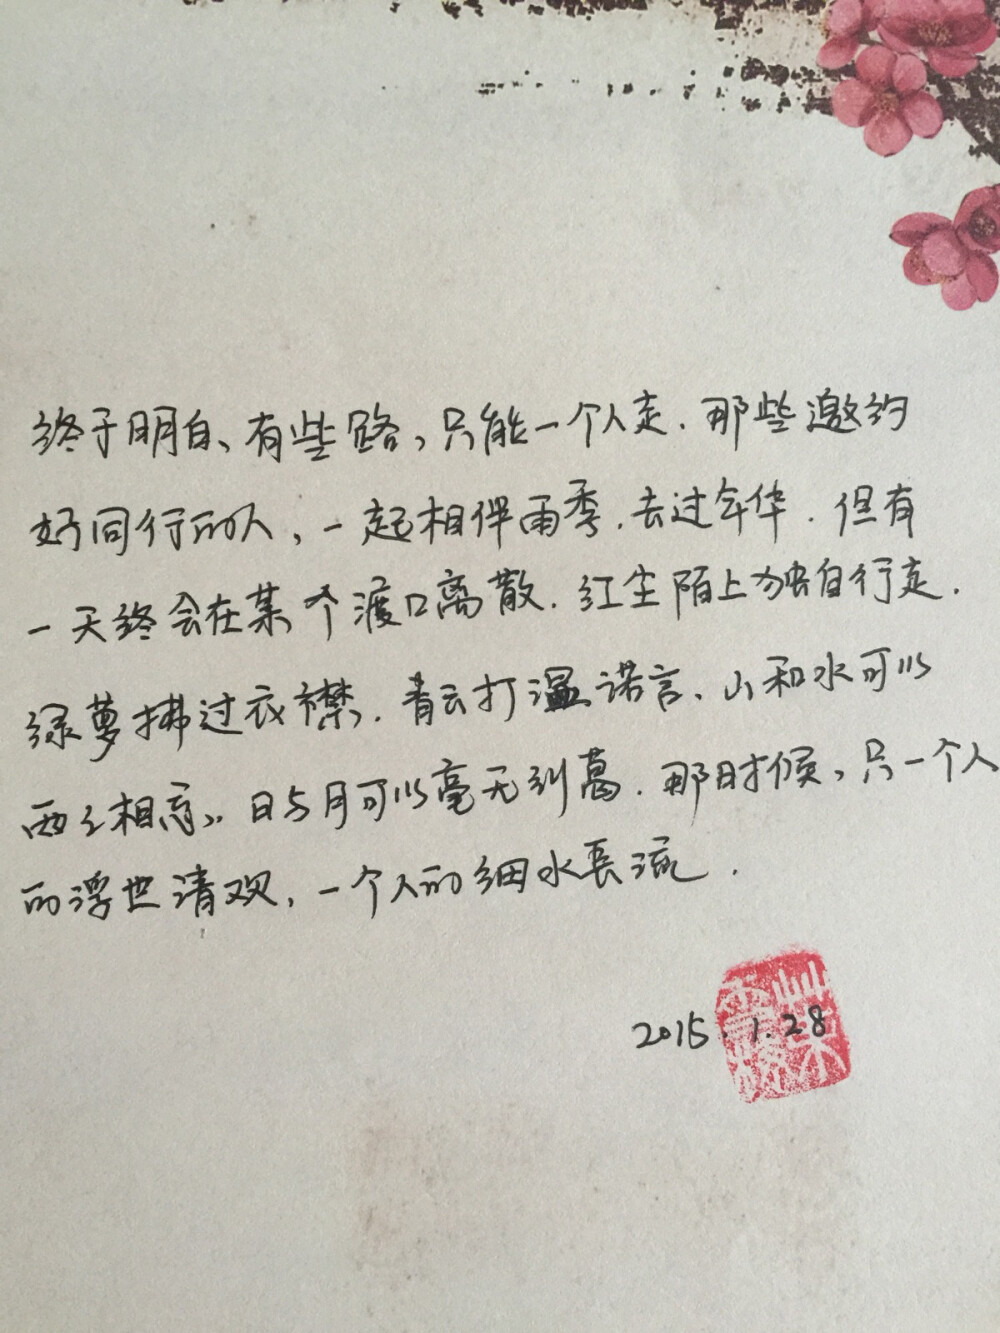 终于明白、有些路，只能一个人走．那些邀约
好同行的人，一起相伴雨季．走过年华．但有
一天终会在某个渡口离散．红尘陌上独自行走．
绿萝拂过衣襟．青云打湿诺言、山和水可以
两两相忘．日与月可以毫无瓜葛．那时候，只一个人
的浮世清欢，一个人的细水长流．
2015.1.28